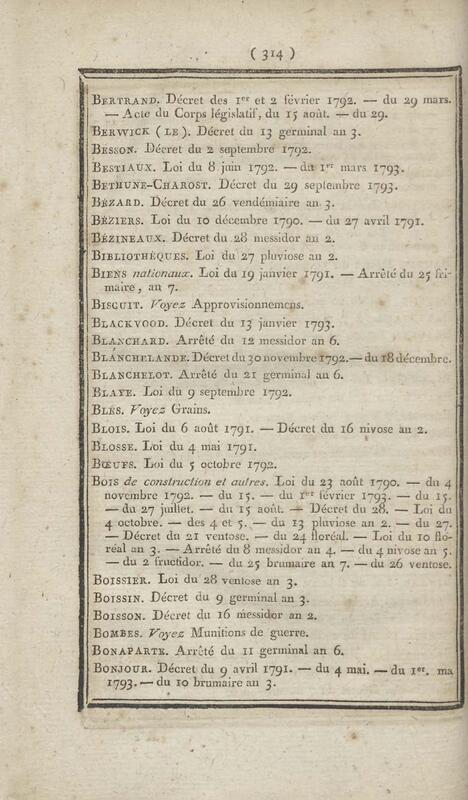 ( 314 )
BERTRAND. Décret des 1er et 2 février 1792. — du 29 mars.
— Acte du Corps législatif, du 15 août. — du 29.
BERWICK ( LE ). Décret du 13 germinal an 3.
BESSON. Décret du 2 septembre 1792.
BESTIAUX. Loi du 8 juin 1792. — du 1er mars 1793.
BETHUNE-CHAROST. Décret du 29 septembre 1793.
BÉZARD. Décret du 26 vendémiaire an 3.
BÉZIERS. Loi du 10 décembre 1790. — du 27 avril 1791.
BÉZINEAUX. Décret du 28 messidor an 2.
BIBLIOTHÈQUES. Loi du 27 pluviose an 2.
BIENS nationaux. Loi du 19 janvier 1791. — Arrêté du 25 fri-
maire, an 7.
BISCUIT. Voyez Approvisionnemens.
BLACKVOOD. Décret du 13 janvier 1793.
BLANCHARD. Arrêté du 12 messidor an 6.
BLANCHELANDE. Décret du 30 novembre 1792. — du 18 décembre.
BLANCHELOT. Arrêté du 21 germinal an 6.
BLAYE. Loi du 9 septembre 1792.
BLÉS. Voyez Grains.
BLOIS. Loi du 6 août 1791. — Décret du 16 nivose an 2.
BLOSSE. Loi du 4 mai 1791.
BŒUFS. Loi du 5 octobre 1792.
BOIS de construction et autres. Loi du 23 août 1790. — du 4
novembre 1792. — du 15. — du 1er février 1793. — du 15.
— du 27 juillet. — du 15 août. — Décret du 28. — Loi du
4 octobre. — des 4 et 5. — du 13 pluviose an 2. — du 27.
— Décret du 21 ventose. — du 24 floréal. — Loi du 10 flo-
réal an 3. — Arrêté du 8 messidor an 4. — du 4 nivose an 5.
— du 2 fructidor. — du 25 brumaire an 7. — du 26 ventose.
BOISSIER. Loi du 28 ventose an 3.
BOISSIN. Décret du 9 germinal an 3.
BOISSON. Décret du 16 messidor an 2.
BOMBES. Voyez Munitions de guerre.
BONAPARTE. Arrêté du 11 germinal an 6.
BONJOUR. Décret du 9 avril 1791. — du 4 mai. — du 1er. ma
1793. — du 10 brumaire an 3.